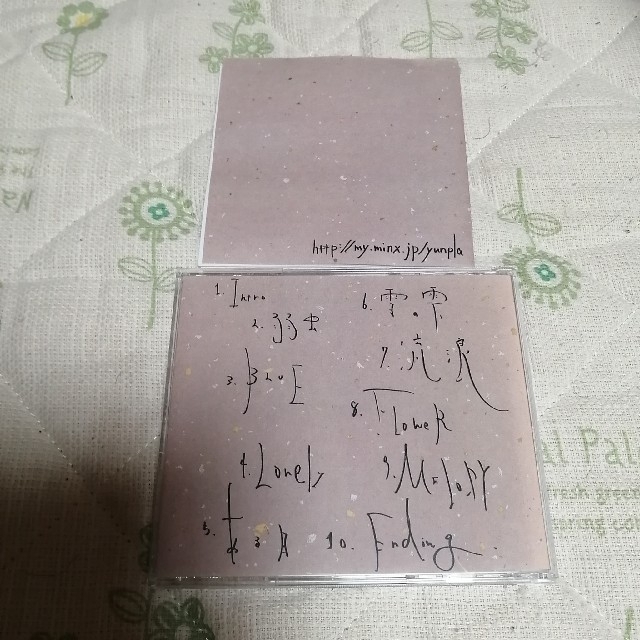 http://my.minx.jp/yunpla
1. Intro
2. 弱虫
3. BLUE
4. Lonely
5.
6.
7. 流浪
8. FLOWER
9. MeloDY
10. Ending